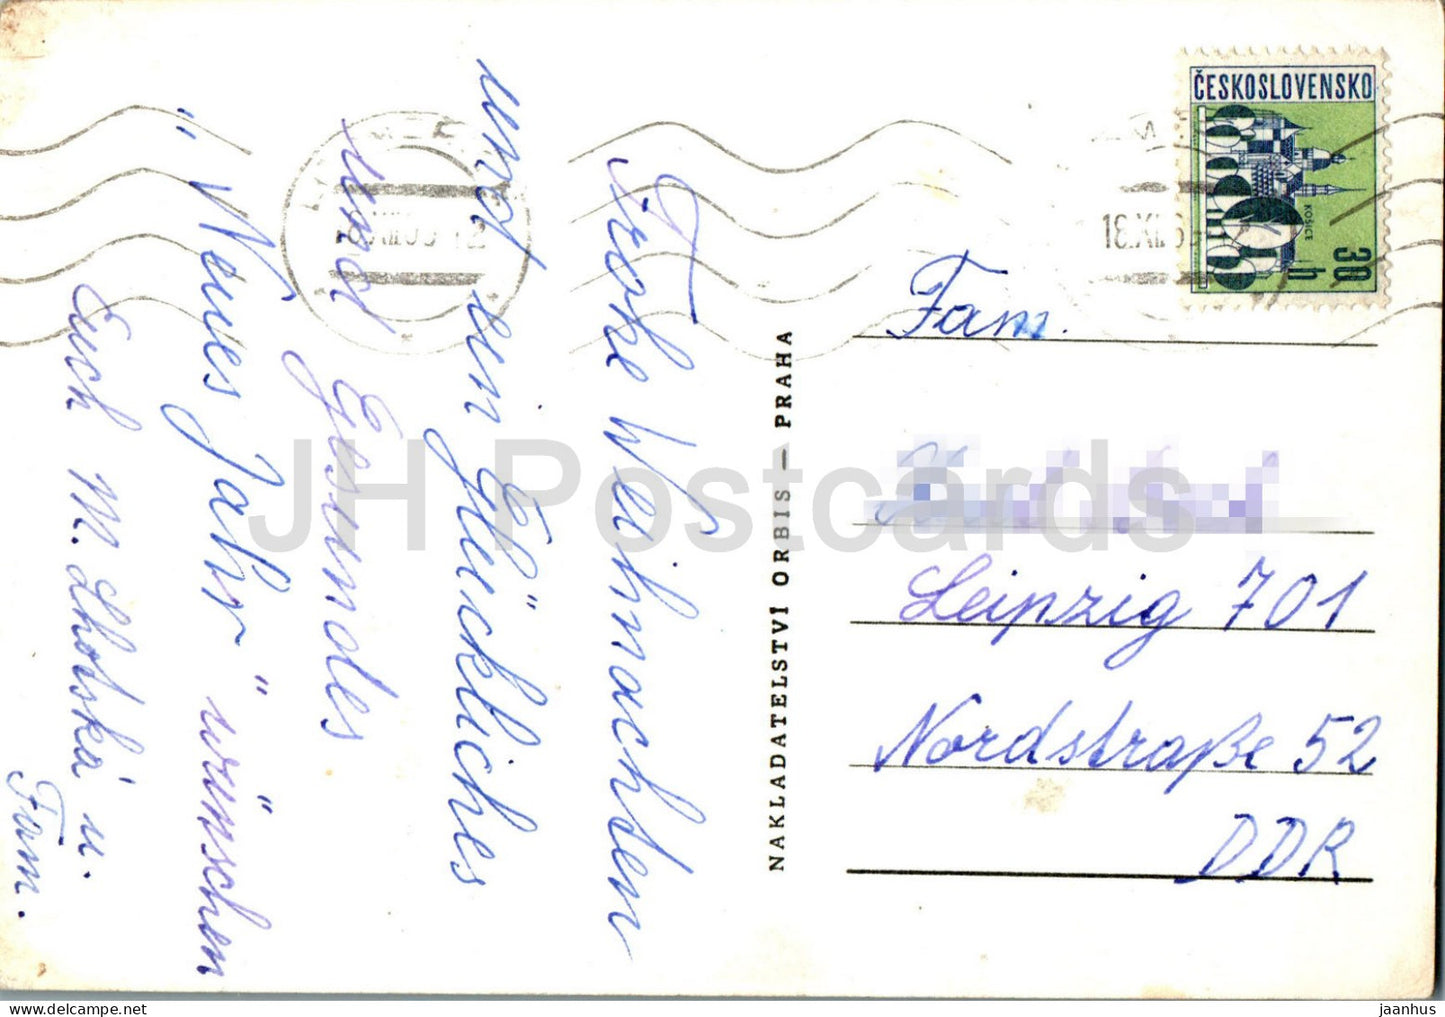 Frohe Weihnachten
und ein glückliches
und Gesundes
Neues Jahr wünschen
Euch M. Lhotská u.
Fam.
NAKLADATELSTVÍ ORBIS — PRAHA
ČESKOSLOVENSKO
KOŠICE
30 h
18.XII.6
Fam.
Leipzig 701
Nordstraße 52
DDR
JH Postcards
jaanhus @ delcampe.net